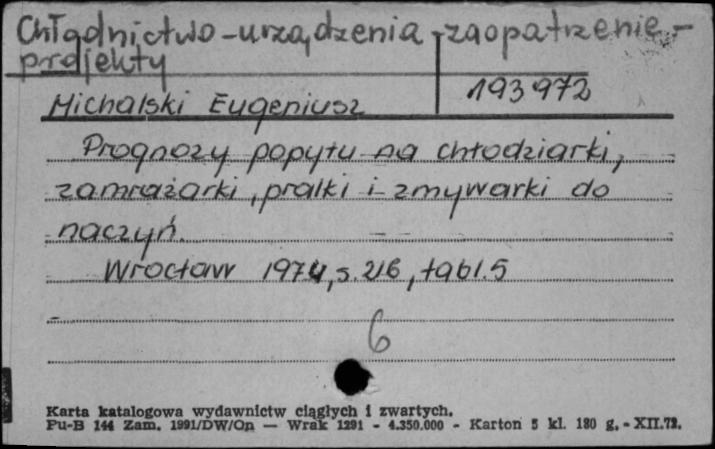 Chłodnictwo - urządzenia - zaopatrzenie -
projekty
Michalski Eugeniusz
193972
Prognozy popytu na chłodziarki,
zamrażarki, pralki i zmywarki do
naczyń.
Wrocław 1974, s. 216, tabl. 5
6
Karta katalogowa wydawnictw ciągłych i zwartych.
Pu-B 144 Zam. 1991/DW/On — Wrak 1291 - 4.350.000 - Karton 5 kl. 180 g. - XII.72.